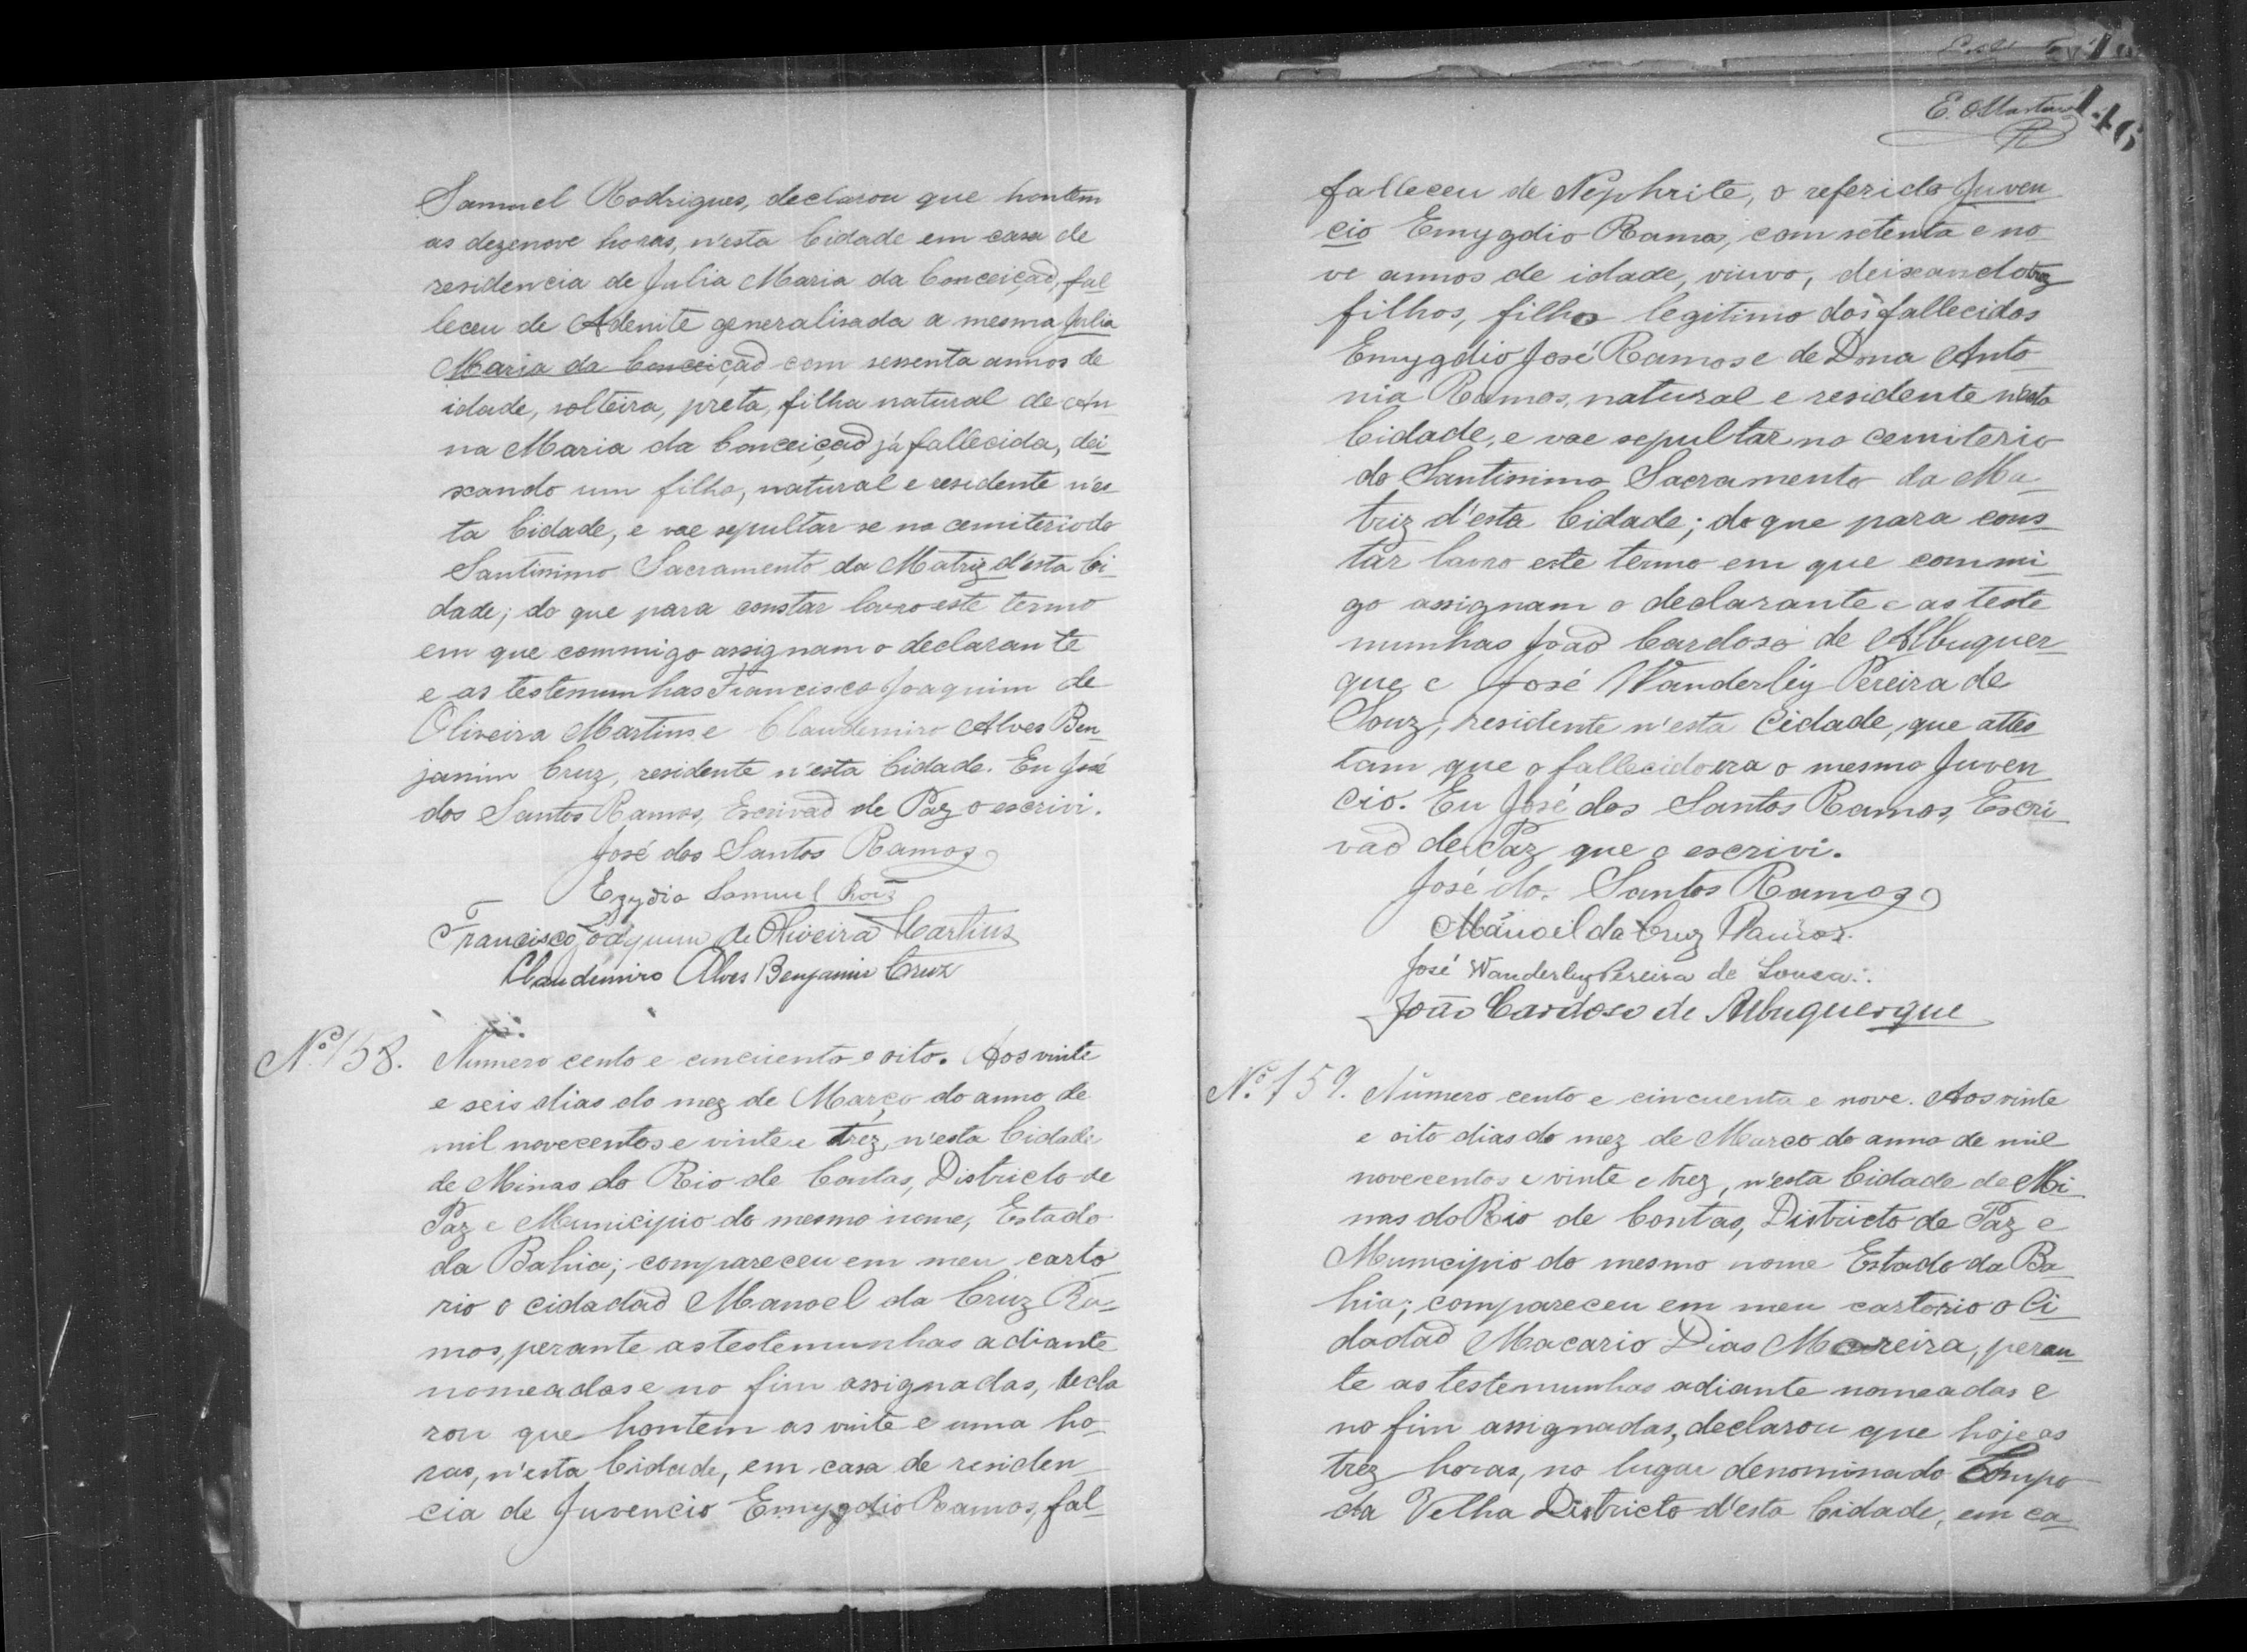 Samuel Rodrigues, declarou que hontem
as dezenove horas, n'esta Cidade em casa de
residencia de Julia Maria da Conceição, fal
leceu de Adenite generalisada a mesma Julia
Maria da Conceição com sessenta annos de
idade, solteira, preta, filha natural de An-
na Maria da Conceição já fallecida, dei-
xando um filho, natural e residente n'es-
ta Cidade, e vae sepultar-se no cemiterio do
Santissimo Sacramento da Matriz d'esta Ci-
dade; do que para constar lavro este termo
em que commigo assignam o declarante
e as testemunhas Francisco Joaquim de
Oliveira Martins e Claudemiro Alves Ben-
jamim Cruz, residente n'esta Cidade. Eu José
dos Santos Ramos, Escrivaõ de Paz o escrivi.
José dos Santos Ramos
Egydio Samuel Roiz
Francisco Joaquim de Oliveira Martins
Claudemiro Alves Benjamin Cruz
Nº 158. Numero cento e cincuenta e oito. Aos vinte
e seis dias do mez de Março do anno de
mil novecentos e vinte e trez, n'esta Cidade
de Minas do Rio de Contas, Districto de
Paz e Municipio do mesmo nome, Estado
da Bahia; compareceu em meu carto
rio o cidadaõ Manoel da Cruz Ra-
mos, perante as testemunhas adiante
nomeadas e no fim assignadas, decla
rou que hontem as vinte e uma ho-
ras, n'esta Cidade, em casa de residen-
cia de Juvencio Emygdio Ramos, fal-
E. Martins
146
falleceu de Nephrite, o referido Juven
cio Emygdio Ramos, com setenta e no-
ve annos de idade, viuvo, deixando trez
filhos, filho legitimo dos fallecidos
Emygdio José Ramos e de Dona Anto-
nia Ramos, natural e residente n'esta
Cidade, e vae sepultar no cemiterio
do Santissimo Sacramento da Ma-
triz d'esta Cidade; do que para cons-
tar lavro este termo em que commi-
go assignam o declarante e as teste
munhas Joaõ Cardoso de Albuquer-
que e José Wanderley Pereira de
Souz, residente n'esta Cidade, que attes
tam que o fallecido era o mesmo Juven
cio. Eu José dos Santos Ramos, Escri-
vaõ de Paz que o escrivi.
José do. Santos Ramos
Manoel da Cruz Ramos.
José Wanderley Pereira de Sousa.
João Cardoso de Albuquerque
Nº 159. Numero cento e cincuenta e nove. Aos vinte
e oito dias do mez de Março do anno de mil
novecentos e vinte e trez, n'esta Cidade de Mi-
nas do Rio de Contas, Districto de Paz e
Municipio do mesmo nome Estado da Ba-
hia; compareceu em meu cartorio o Ci-
dadaõ Macario Dias Moreira, peran-
te as testemunhas adiante nomeadas e
no fim assignadas, declarou que hoje as
trez horas, no lugar denominado Campo
da Velha Districto d'esta Cidade, em ca-